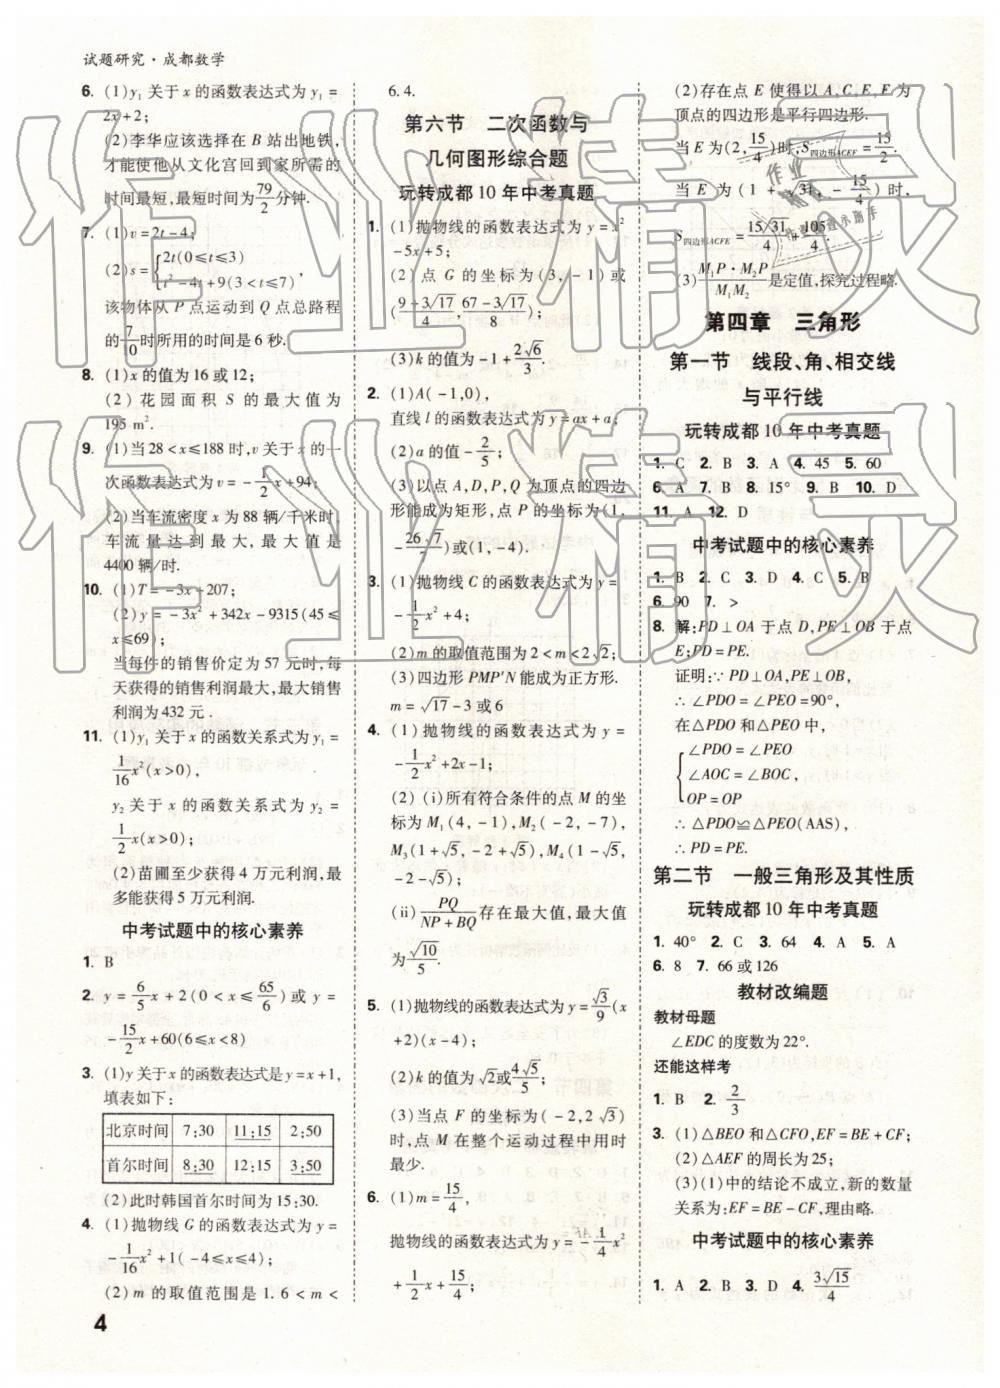 试题研究·成都数学
6. (1)y₁ 关于 x 的函数表达式为 y₁ =
2x+2;
(2)李华应该选择在 B 站出地铁,
才能使他从文化宫回到家所需的
时间最短,最短时间为79/2分钟.
7. (1)v=2t-4;
(2)s={2t(0≤t≤3)
t²-4t+9(3<t≤7),
该物体从 P 点运动到 Q 点总路程
的7/10时所用的时间是 6 秒.
8. (1)x 的值为 16 或 12;
(2) 花园面积 S 的最大值为
195 m².
9. (1)当 28<x≤188 时,v 关于 x 的一
次函数表达式为 v=-1/2x+94;
(2)当车流密度 x 为 88 辆/千米时,
车流量达到最大,最大值是
4400 辆/时.
10. (1)T=-3x+207;
(2)y=-3x²+342x-9315(45≤
x≤69);
当每件的销售价定为 57 元时,每
天获得的销售利润最大,最大利润
为 432 元.
11. (1)y₁ 关于 x 的函数关系式为 y₁=
1/16x²(x>0);
y₂ 关于 x 的函数关系式为 y₂=
1/2x(x>0);
(2)苗圃至少获得 4 万元利润,最
多能获得 5 万元利润.
中考试题中的核心素养
1. B
2. y=6/5x+2(0<x≤65/6)或 y=
-15/2x+60(6≤x<8)
3. (1)y 关于 x 的函数表达式是 y=x+1,
填表如下:
北京时间 7:30 11:15 2:50
首尔时间 8:30 12:15 3:50
(2)此时韩国首尔时间为 15:30.
4. (1)抛物线 G 的函数表达式为 y=
-1/16x²+1(-4≤x≤4);
(2)m 的取值范围是 1.6<m<
4
6.4.
第六节 二次函数与
几何图形综合题
玩转成都 10 年中考真题
1. (1)抛物线的函数表达式为 y=x²
-5x+5;
(2)点 G 的坐标为(3,-1)或
(9+3√17/4,67-3√17/8);
(3)k 的值为-1+2√6/3.
2. (1)A(-1,0),
直线 l 的函数表达式为 y=ax+a;
(2)a 的值-2/5;
(3)以点 A,D,P,Q 为顶点的四边
形能成为矩形,点 P 的坐标为(1,
-26√7/7)或(1,-4).
3. (1)抛物线 C 的函数表达式为 y=
-1/2x²+4;
(2)m 的取值范围为 2<m<2√2;
(3)四边形 PMP′N 能成为正方形.
m=√17-3 或 6
4. (1)抛物线的函数表达式为 y=
-1/2x²+2x-1;
(2)(ⅰ)所有符合条件的点 M 的坐
标为 M₁(4,-1),M₂(-2,-7),
M₃(1+√5,-2+√5),M₄(1-√5,
-2-√5);
(ⅱ)PQ/NP+BQ存在最大值,最大值
为√10/5.
5. (1)抛物线的函数表达式为 y=√3/9(x
+2)(x-4);
(2)k 的值为√2或4√5/5;
(3)当点 F 的坐标为(-2,2√3)
时,点 M 在整个运动过程中用时
最少.
6. (1)m=15/4,
抛物线的函数表达式为 y=-1/4x²
+1/2x+15/4;
(2)存在点 E 使得以 A,C,E,F 为
顶点的四边形是平行四边形.
当 E 为(2,15/4)时,S四边形ACEF=15/2.
当 E 为(1+√31,-15/4)时,
S四边形ACFE=15√31/4+105/4.
(3)M₁P·M₂P/M₁M₂是定值,探究过程略.
第四章 三角形
第一节 线段、角、相交线
与平行线
玩转成都 10 年中考真题
1. C 2. B 3. A 4. 45 5. 60
6. A 7. B 8. 15° 9. B 10. D
11. A 12. D
中考试题中的核心素养
1. B 2. C 3. D 4. C 5. B
6. 90 7. >
8. 解:PD⊥OA 于点 D,PE⊥OB 于点
E;PD=PE.
证明:∵PD⊥OA,PE⊥OB,
∴∠PDO=∠PEO=90°,
在△PDO 和△PEO 中,
{∠PDO=∠PEO
∠AOC=∠BOC,
OP=OP
∴△PDO≌△PEO(AAS),
∴PD=PE.
第二节 一般三角形及其性质
玩转成都 10 年中考真题
1. 40° 2. C 3. 64 4. A 5. A
6. 8 7. 66 或 126
教材改编题
教材母题
∠EDC 的度数为 22°.
还能这样考
1. B 2. 2/3
3. (1)△BEO 和△CFO,EF=BE+CF;
(2)△AEF 的周长为 25;
(3)(1)中的结论不成立,新的数量
关系为:EF=BE-CF,理由略.
中考试题中的核心素养
1. A 2. B 3. D 4. 3√15/4
作业精灵
作业精灵